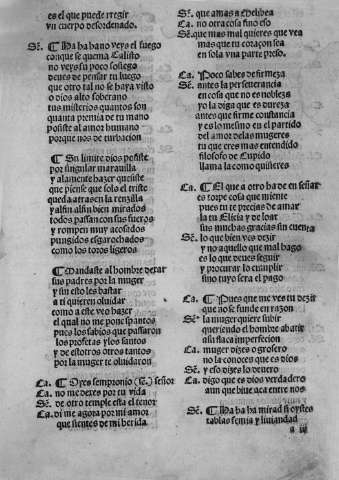 es el que puede rregir
vn cuerpo desordenado.
Sē. ¶ Ha ha ha no veys el fuego
con que se quema Calisto
no veys su poco sosiego
deues de pensar tu luego
que otro tal no se haya visto
o dios alto soberano
tus misterios quantos son
quanta premia de tu mano
posiste al amor humano
porque nos de turbacion
¶ Sin limite dios posiste
por singular marauilla
y altamente hazer quesiste
que piense que solo el triste
queda atras en la renzilla
y al fin al fin bien mirados
todos passan con sus fueros
y rompen muy acosados
pungidos esgarochados
como los toros ligeros
¶ Mandaste al hombre dexar
sus padres por la muger
y sin esto les bastar
a ti quieren oluidar
como a este veo hazer
el qual no me pone spantos
pues los sabios que passaron
los profetas y los santos
y de estotros otros tantos
por la muger te oluidaron
Ca. ¶ Oyes sempronio (sē.) señor
Ca. no me dexes por tu vida
Sē. de otro temple esta el tenor
Ca. di me agora por mi amor
que sientes de mi herida.
Sē. que amas a Melibea
Ca. no otra cosa sino eso
Sē. que mas mal quieres que vea
mas que tu coraçon sea
en sola vna parte preso.
Ca. ¶ Poco sabes de firmeza
Sē. antes la perseuerancia
en cosa que no es nobleza
yo la digo que es dureza
antes que firme constancia
y es lo mesmo en el partido
del amor de las mugeres
tu que eres mas entendido
filosofo de Cupido
llama la como quisieres
Ca. ¶ El que a otro ha de enseñar
es torpe cosa que miente
pues tu te precias de amar
la tu Elicia y de loar
sus muchas gracias sin cuenta
Sē. lo que bien ves dezir
y no aquello que mal hago
es lo que deues seguir
y procurar lo cumplir
sino tuyo sera el pago
Ca. ¶ Pues que me ves tu dezir
que no se funde en razon
Sē. la muger quiere subir
queriendo el hombre abatir
a su flaca imperfecion
Ca. muger dizes o grosero
no la conoces que es dios
Sē. y eso dizes lo de vero
Ca. digo que es dios verdadero
aun que biue aca entre nos
Sē. ¶ Ha ha ha mirad si oystes
tablas femia y liuiandad
a iij